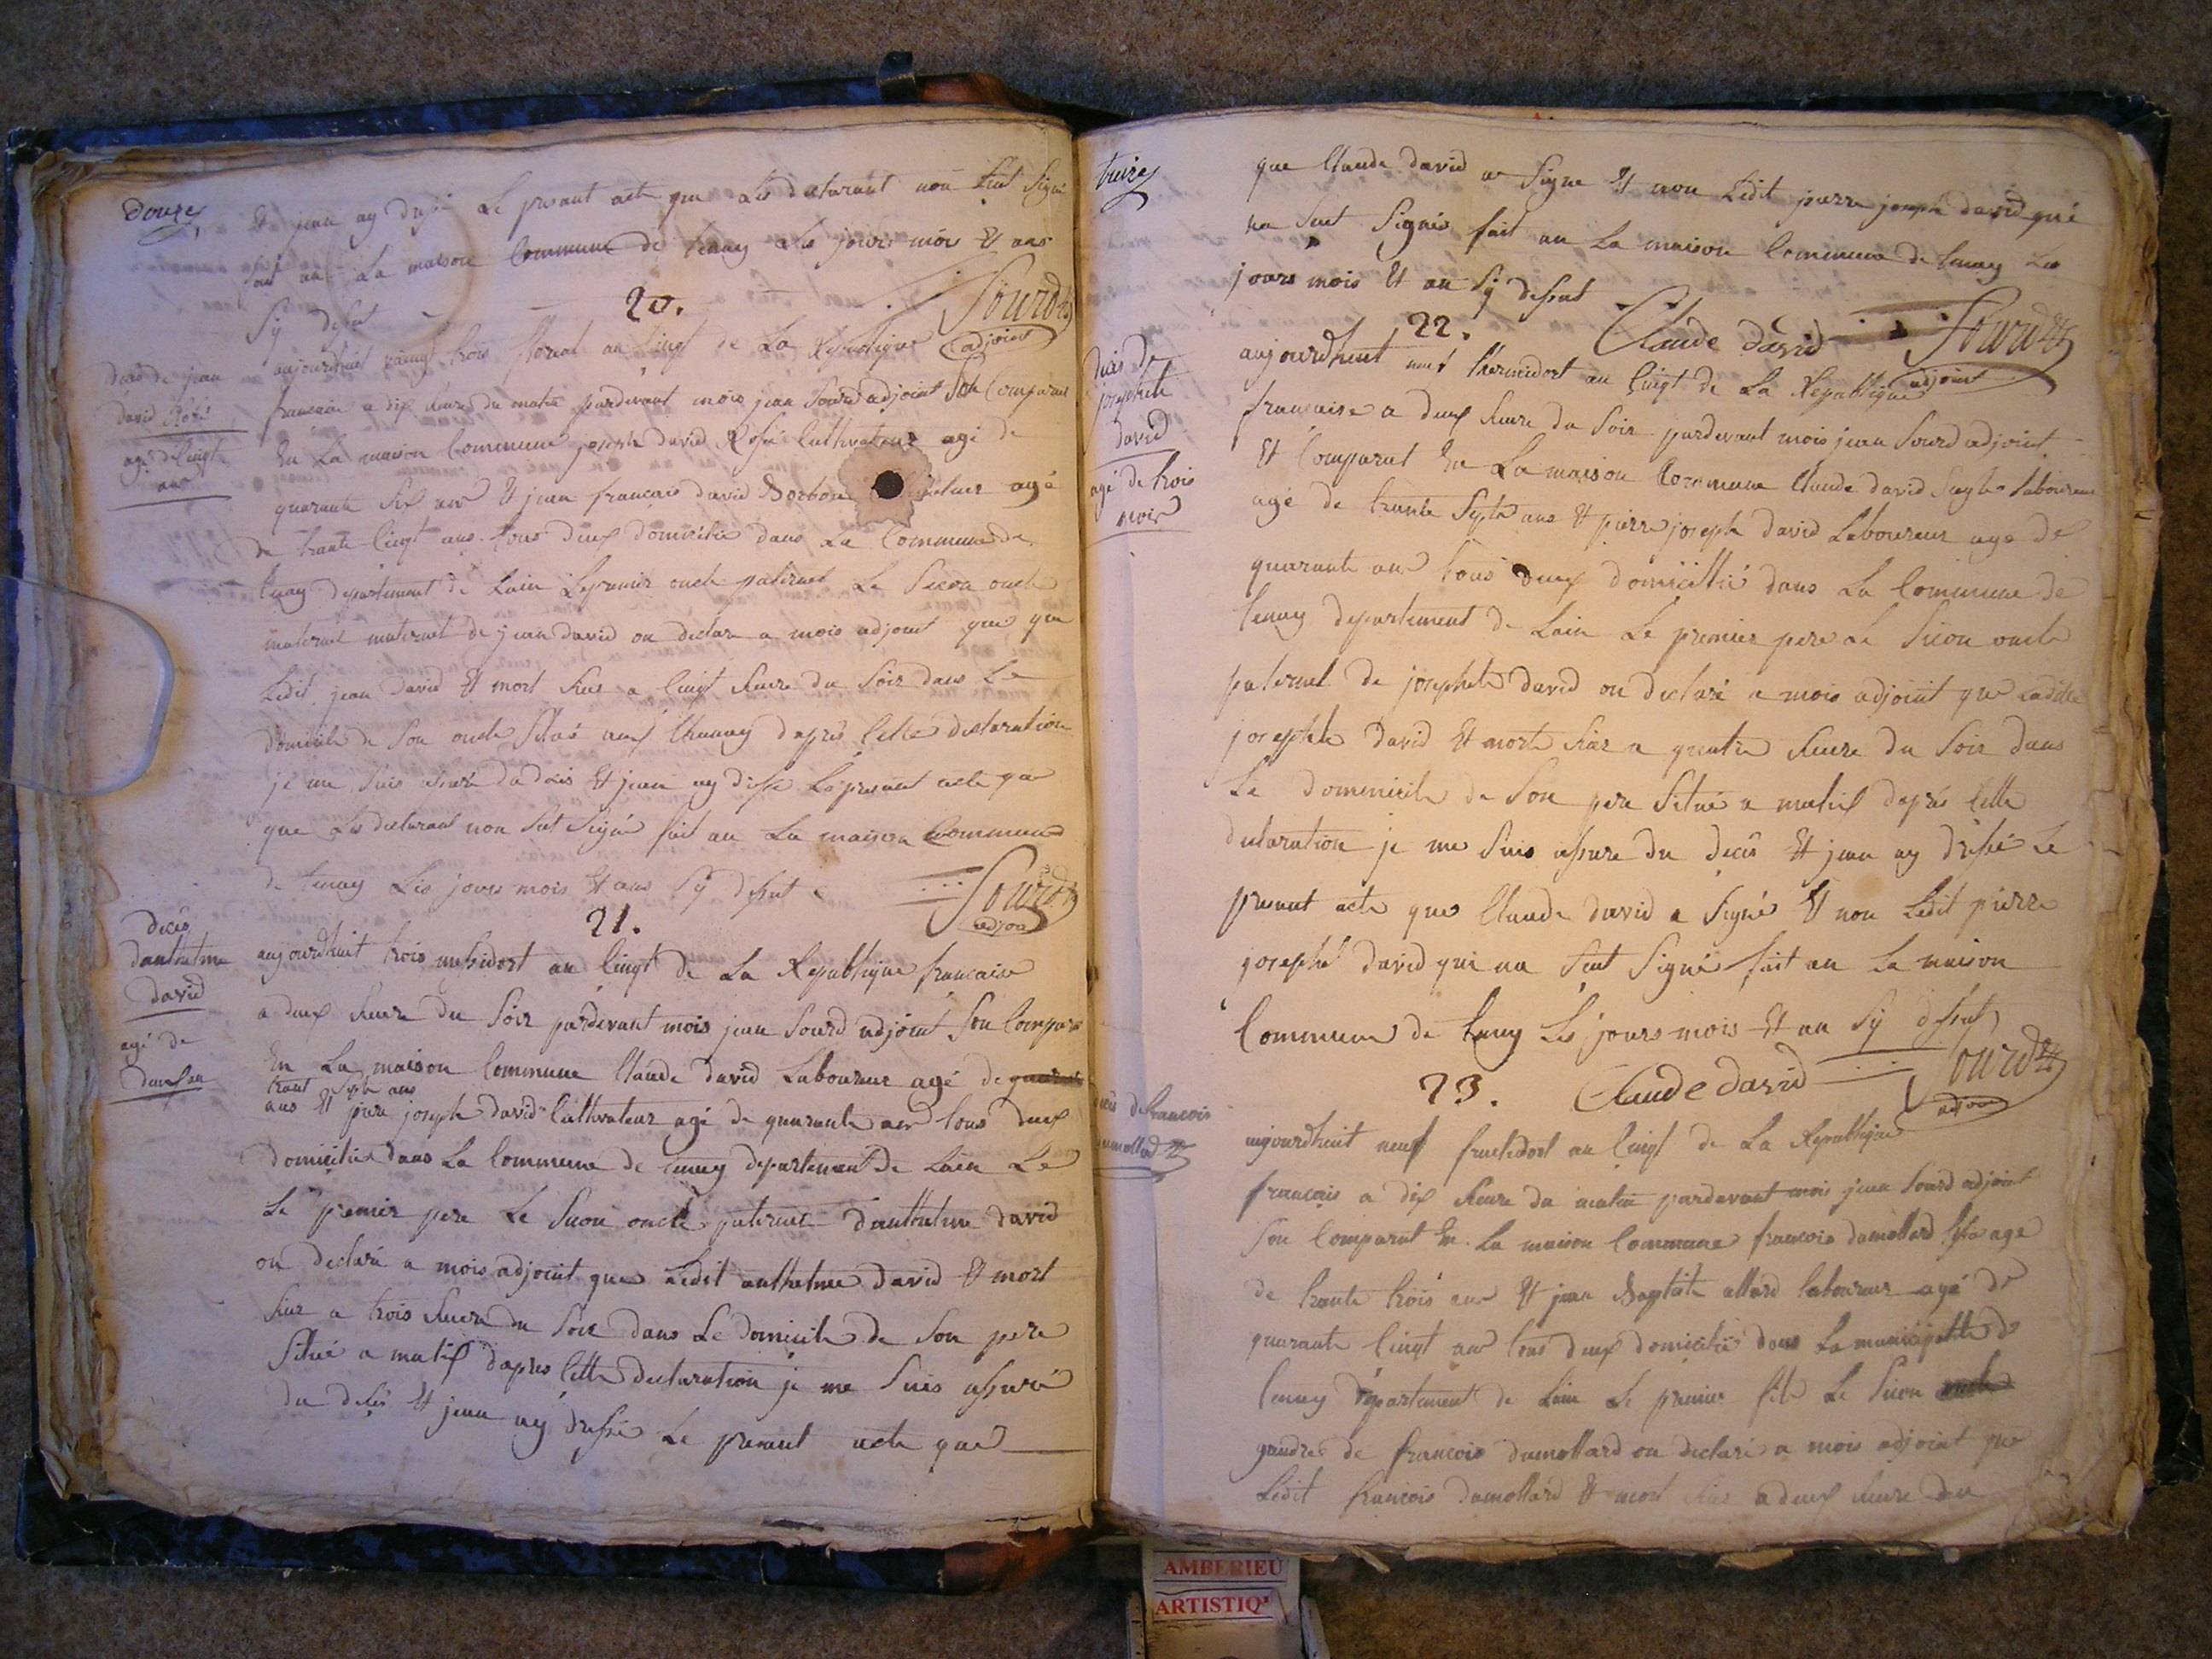 douze
Et jean ay dressé Le presant acte que Les declarant non sut signé
fait an La maison Commune de tenay Les jours mois Et ans
Sÿ desut
20.
Sourd
adjoint
deces de jean
david
agé de cinqt
ans
aujourdhuit vaingt trois floreal an cinqt de La Republique
francaise a dix heure du matin pardevant mois jean Sourd adjoint Son Comparut
En La maison Commune joseph david Rosé Cultivateur agé de
quarante six ans Et jean francois david agé
de trante cinqt ans tous deux domicilié dans La Commune de
tenay departement de Lain Le premier oncle paternel Le Secon oncle
maternel maternel de jean david on declare a mois adjoint que que
Ledit jean david Et mort hier a cinqt heure du Soir dans Le
domicile de Son oncle Situé dapres cette declaration
je me Suis assuré du deces Et jean ay dressé Le presant acte que
que Les declarant non sut signé fait an La maison Commune
de tenay Les jours mois Et ans Sÿ desut
Sourd
adjoint
21.
deces
danthelme
david
agé de
deux an
aujourdhuit trois messidort an cinqt de La Republique francaise
a deux heure du Soir pardevant mois jean Sourd adjoint Son Comparut
En La maison Commune Claude david Laboureur agé de quarante
trant Septe ans
ans Et piere joseph david Cultivateur agé de quarante ans tous deux
domicilié dans La Commune de tenay departement de Lain Le
Le premier pere Le Secon oncle paternel danthelme david
on declaré a mois adjoint que Ledit anthelme david Et mort
hier a trois heure du Soir dans Le domicile de Son pere
Situé a matix dapres cette declaration je me Suis assuré
du deces Et jean ay dressé Le presant acte que
treize
que Claude david a Signe Et non Ledit pierre joseph david qui
na Sut Signés fait an La maison Commune de tenay Les
jours mois Et an Sÿ desut
22.
Claude david
Sourd
adjoint
deces de
josephte
david
agé de trois
mois
aujourdhuit neuf thermidort an cinqt de La Republique
francaise a deux heure du Soir pardevant mois jean Sourd adjoint
Et Comparut En La maison Commune Claude david Laboureur
agé de trante Septe ans Et pierre joseph david Laboureur age de
quarante ans tous deux domicillié dans La Commune de
tenay departement de Lain Le premier pere Le Secon oncle
paternel de josephte david on declaré a mois adjoint que Ladite
josephte david Et morte hier a quatre heure du Soir dans
Le domicile de Son pere Situé a matix daprés cette
declaration je me Suis assure du deces Et jean ay dressé Le
presant acte que Claude david a Signé Et non Ledit pierre
joseph david qui na Sut Signé fait an La maison
Commune de tenay Les jours mois Et an Sÿ desut
23.
Claude david
Sourd
adjoint
deces de francois
dumollard
aujourdhuit neuf fructidort an cinqt de La Republique
francais a dix heure du matin pardevant mois jean Sourd adjoint
Son Comparut En La maison Commune francois dumollard age
de trante trois ans Et jean Baptiste allard laboureur agé de
quarante cinqt ans tous deux domicilié dans La municipalite de
tenay departement de Lain Le premier fils Le Secon oncle
gendres de francois dumollard on declaré a mois adjoint que
Ledit francois dumollard Et mort hier a deux heure du
AMBERIEU
ARTISTIQ